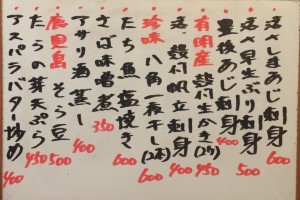 しまあじ刺身 600
早生ぶり刺身 500
豊後あじ刺身 400
有明産 殻付生かき 450
活 殻付帆立刺身 400
珍味 八角一夜干し 600
たち魚塩焼き 600
さば味噌煮 350
アサリ酒蒸し 400
鹿児島 そら豆 500
たらの芽天ぷら 450
アスパラバター炒め 400